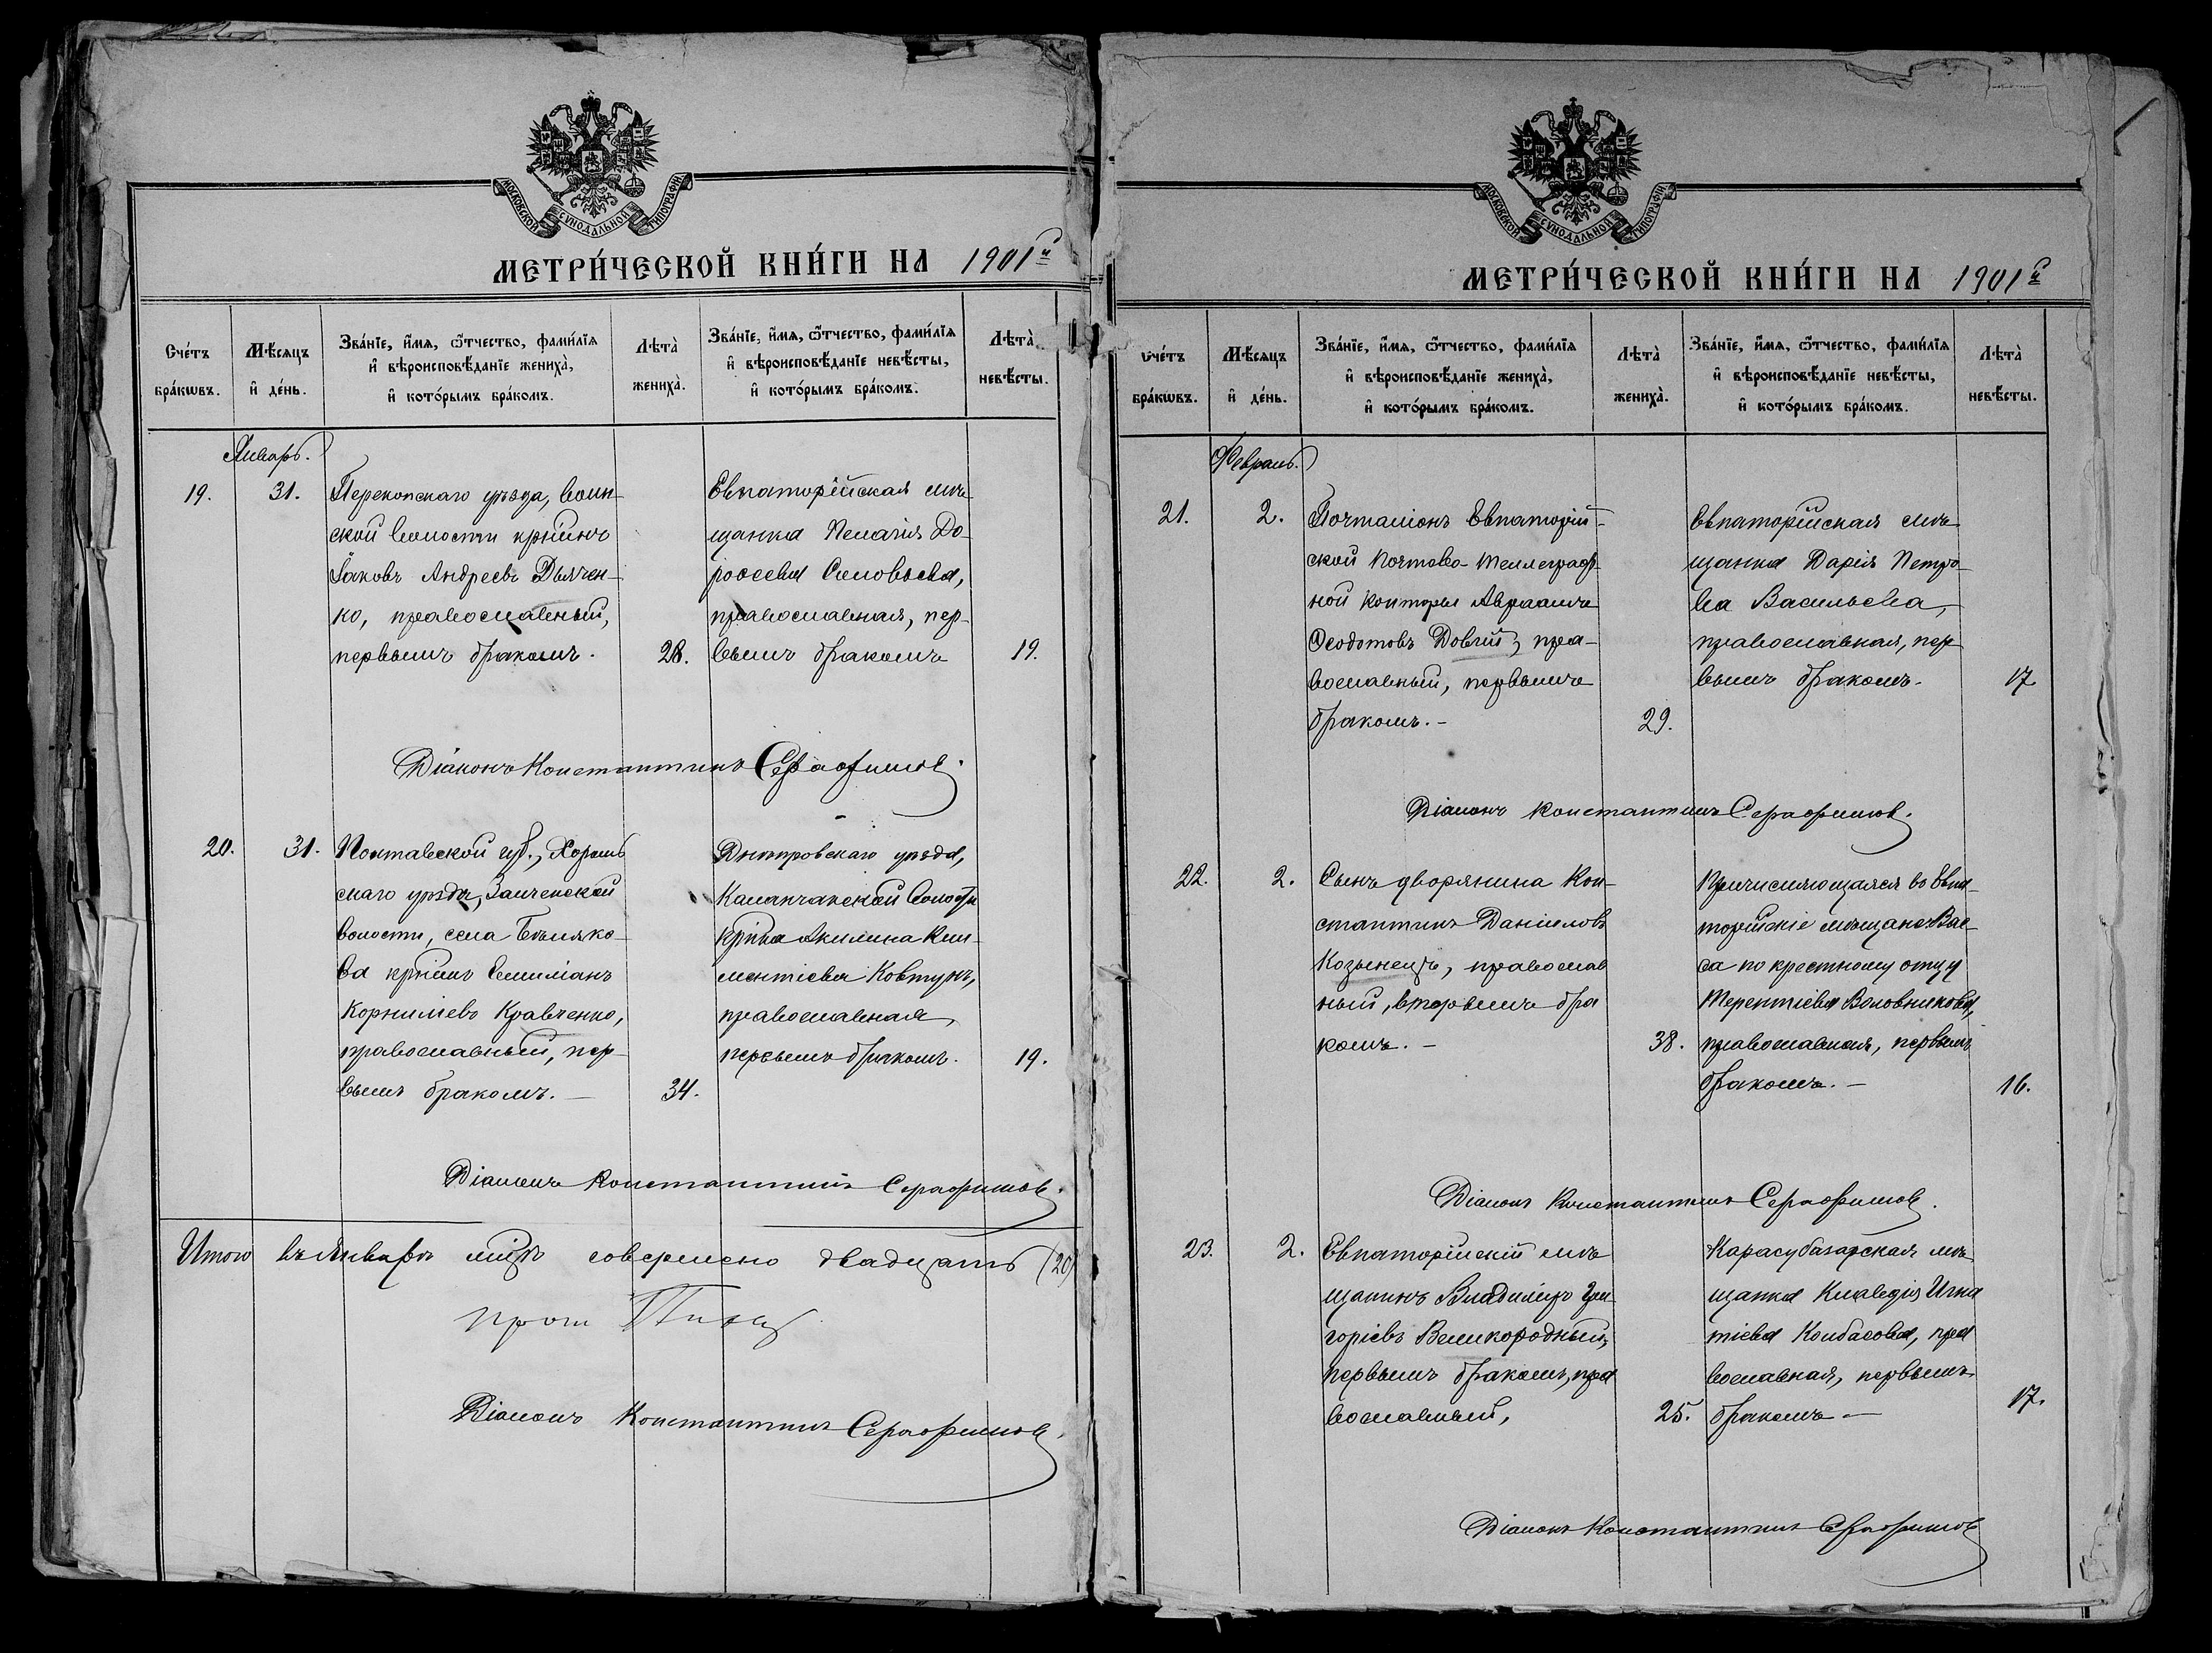 МОСКОВСКОЙ СѴНОДАЛЬНОЙ ТИПОГРАФІИ
МЕТРИ́ЧЕСКОЙ КНИ́ГИ НА 1901й
Сче́тъ бра́кωвъ.
Мѣ́сяцъ и҆ де́нь.
Зва́нїе, и҆́мѧ, ѻ҆́тчество, фами́лїѧ и҆ вѣроисповѣ́данїе жениха̀, и҆ кото́рымъ бра́комъ.
Лѣта̀ жениха̀.
Зва́нїе, и҆́мѧ, ѻ҆́тчество, фами́лїѧ и҆ вѣроисповѣ́данїе невѣ́сты, и҆ кото́рымъ бра́комъ.
Лѣта̀ невѣ́сты.
Январь.
19.
31.
Перекопскаго уѣзда, Воин-
ской волости крнинъ
Іаковъ Андреевъ Дьячен-
ко, православный,
первымъ бракомъ.
28.
Евпаторійская мѣ-
щанка Пелагія До-
роѳеева Соловьева,
православная, пер-
вымъ бракомъ
19.
Діаконъ Константинъ Серафимов.
20.
31.
Полтавской губ., Хороль
скаго уѣзда, Заиченской
волости, села Бѣляко-
ва крнинъ Емиліанъ
Корниліевъ Кравченко,
православный, пер-
вымъ бракомъ. —
34.
Днѣпровскаго уѣзда,
Каланчакской волости
крнка Акилина Кли-
ментіева Ковтунъ,
православная,
первымъ бракомъ.
19.
Діаконъ Константинъ Серафимов.
Итого въ Январѣ мцѣ совершено двадцать (20)
прот.
Діаконъ Константинъ Серафимов.
МОСКОВСКОЙ СѴНОДАЛЬНОЙ ТИПОГРАФІИ
МЕТРИ́ЧЕСКОЙ КНИ́ГИ НА 1901й
Сче́тъ бра́кωвъ.
Мѣ́сяцъ и҆ де́нь.
Зва́нїе, и҆́мѧ, ѻ҆́тчество, фами́лїѧ и҆ вѣроисповѣ́данїе жениха̀, и҆ кото́рымъ бра́комъ.
Лѣта̀ жениха̀.
Зва́нїе, и҆́мѧ, ѻ҆́тчество, фами́лїѧ и҆ вѣроисповѣ́данїе невѣ́сты, и҆ кото́рымъ бра́комъ.
Лѣта̀ невѣ́сты.
Февраль.
21.
2.
Почталіонъ Евпаторій-
ской Почтово-Теллеграф-
ной Конторы Авраамъ
Ѳеодотовъ Довгій, пра-
вославный, первымъ
бракомъ. —
29.
Евпаторійская мѣ-
щанка Дарія Петро-
ва Васильева,
православная, пер-
вымъ бракомъ.
17
Діаконъ Константинъ Серафимов.
22.
2.
Сынъ дворянина Кон-
стантинъ Даніиловъ
Козынецъ, православ
ный, вторымъ бра
комъ. —
38.
Причисляющаяся во Евпа-
торійскіе мѣщане Вас-
са по крестному отцу
Терентіева Воловникова,
православная, первымъ
бракомъ. —
16.
Діаконъ Константинъ Серафимов.
23.
2.
Евпаторійскій мѣ
щанинъ Владиміръ Гри-
горіевъ Великородный,
первымъ бракомъ, пра
вославный,
25.
Карасубазарская мѣ-
щанка Клавдія Игна
тіева Колбасова, пра
вославная, первымъ
бракомъ —
17.
Діаконъ Константинъ Серафимов